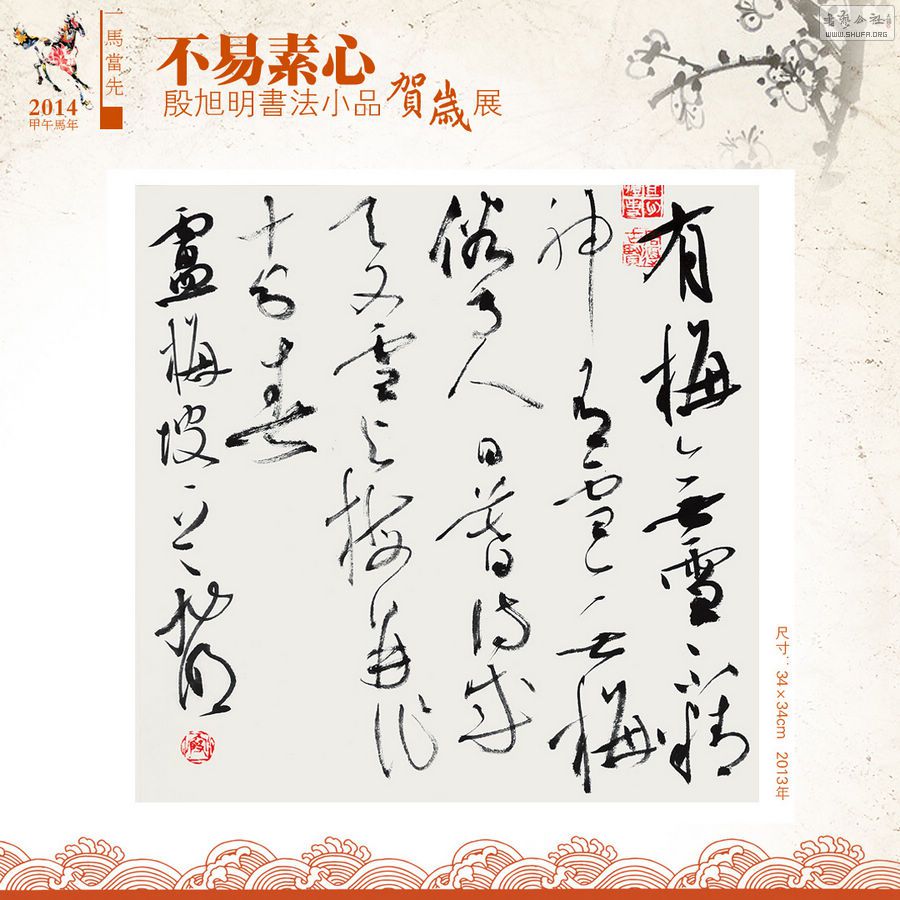 一馬當先
2014
甲午馬年
不易素心
殷旭明書法小品賀歲展
書藝公社
WWW.SHUFA.ORG
有梅无雪不精
神有雪无梅
俗了人日暮诗成
天又雪与梅并作
十分春
盧梅坡 旭明
尺寸:34×34cm 2013年